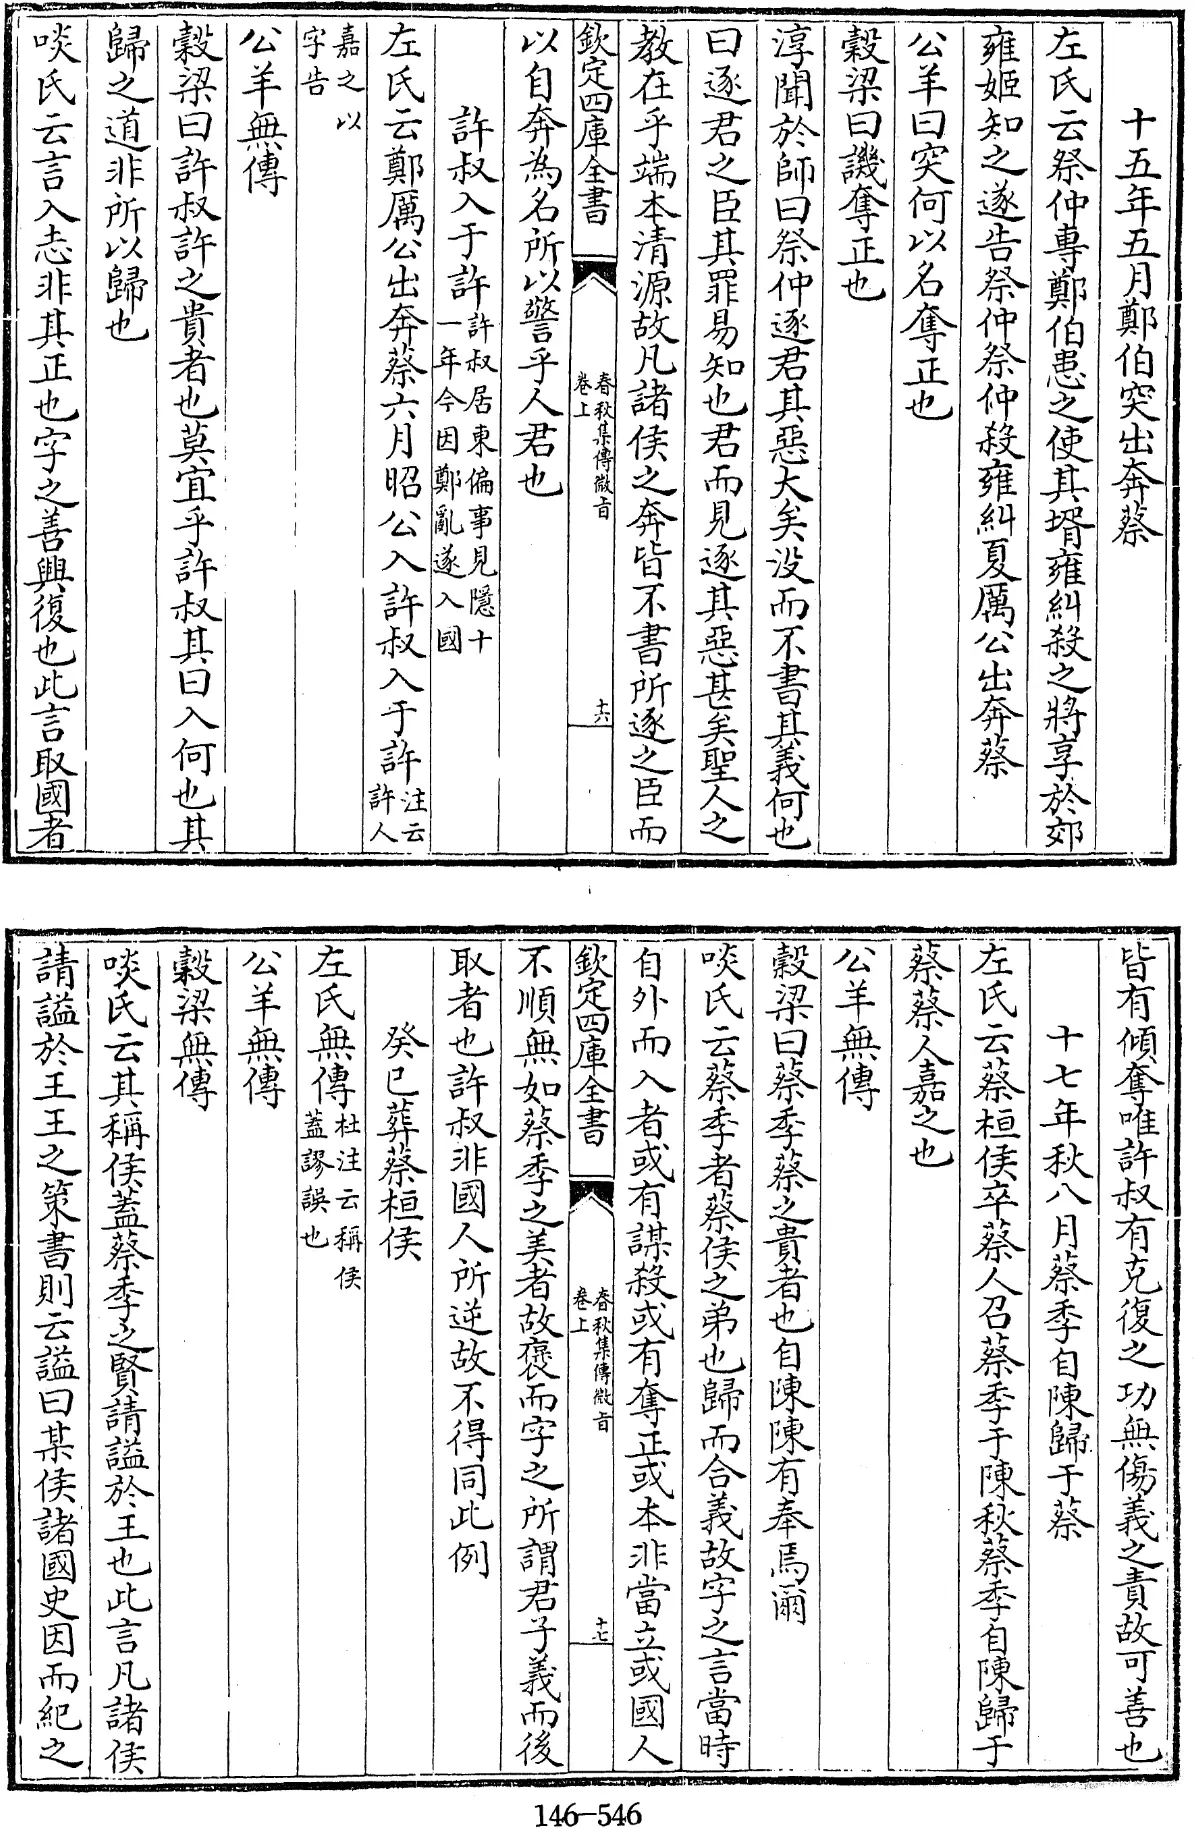 十五年五月鄭伯突出奔蔡
左氏云祭仲專鄭伯患之使其壻雍糾殺之將享於郊
雍姬知之遂告祭仲祭仲殺雍糾夏厲公出奔蔡
公羊曰突何以名奪正也
穀梁曰譏奪正也
淳聞於師曰祭仲逐君其惡大矣沒而不書其義何也
曰逐君之臣其罪易知也君而見逐其惡甚矣聖人之
教在乎端本清源故凡諸侯之奔皆不書所逐之臣而
欽定四庫全書
春秋集傳微旨
卷上
十六
以自奔為名所以警乎人君也
許叔入于許許叔居東偏事見隱十
一年今因鄭亂遂入國
左氏云鄭厲公出奔蔡六月昭公入許叔入于許注云
許人
嘉之以
字告
公羊無傳
穀梁曰許叔許之貴者也莫宜乎許叔其曰入何也其
歸之道非所以歸也
啖氏云言入志非其正也字之善興復也此言取國者
皆有傾奪唯許叔有克復之功無傷義之責故可善也
十七年秋八月蔡季自陳歸于蔡
左氏云蔡桓侯卒蔡人召蔡季于陳秋蔡季自陳歸于
蔡蔡人嘉之也
公羊無傳
穀梁曰蔡季蔡之貴者也自陳陳有奉焉爾
啖氏云蔡季者蔡侯之弟也歸而合義故字之言當時
自外而入者或有謀殺或有奪正或本非當立或國人
欽定四庫全書
春秋集傳微旨
卷上
十七
不順無如蔡季之美者故褒而字之所謂君子義而後
取者也許叔非國人所逆故不得同此例
癸巳葬蔡桓侯
左氏無傳杜注云稱侯
蓋謬誤也
公羊無傳
穀梁無傳
啖氏云其稱侯蓋蔡季之賢請謚於王也此言凡諸侯
請謚於王王之策書則云謚曰某侯諸國史因而紀之
146-546